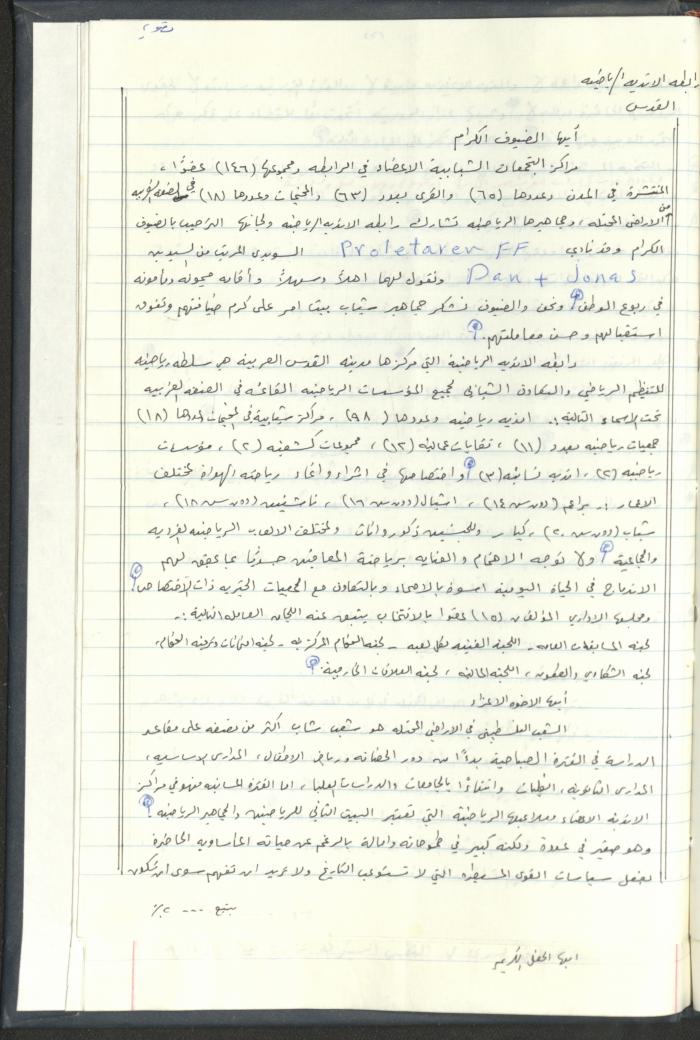 رابطه الانديه الرياضيه
القدس
أيها الضيوف الكرام
مراكز التجمعات الشبابية الاعضاء في الرابطه ومجموعها (١٤٦) عضوًا،
المنتشرة في المدن وعددها (٦٥) والقرى بعدد (٦٣) والمخيمات وعددها (١٨) في الضفه الغربيه
من الاراضي المحتله، وجماهيرها الرياضيه تشارك رابطه الانديه الرياضيه ولجانها الترحيب بالضيوف
الكرام وفد نادي Proletaren FF السويدي المرتب من السيدين
Dan + Jonas ونقول لهما اهلاً وسهلاً وأقامه ميمونه ومأمونه
في ربوع الوطن ونحن والضيوف نشكر جماهير شباب بيت امر على كرم ضيافتهم وتفوق
استقبالهم وحسن معاملتهم.
رابطه الانديه الرياضية التي مركزها مدينه القدس العربيه هي سلطه رياضيه
للتنظيم الرياضي والتعاون الشبابي لجميع المؤسسات الرياضيه القائمه في الضفه الغربيه
تحت الاسماء التاليه:. انديه رياضيه وعددها (٩٨)، مراكز شبابية في المخيمات عددها (١٨)
جمعيات رياضيه بعدد (١١)، نقابات عماليه (١٢)، مجموعات كشفيه (٢)، مؤسسات
رياضيه (٢)، انديه نسائيه (٣) واختصاصها في اشراف وانماء رياضه الهواة لمختلف
الاعمار:. براعم (دون سن ١٤)، اشبال (دون سن ١٦)، ناشئين (دون سن ١٨)،
شباب (دون سن ٢٠)، كبار وللجنسين ذكور واناث ولمختلف الالعاب الرياضيه الفرديه
والجماعية ولا توجه الاهتمام والعنايه برياضة المعاقين جسديًا بما يحقق لهم
الاندماج في الحياة اليومية اسوة بالاصحاء وبالتعاون مع الجمعيات الخيريه ذات الاختصاص
ومجلسها الاداري المؤلف من (١٥) عضوا بالانتخاب ينبثق عنه اللجان العامله التاليه:.
لجنه المسابقات العامه - اللجنه الفنيه لكل لعبه - لجنه الحكام المركزيه -
لجنه الشكاوي والطعون، اللجنه الماليه، لجنه العلاقات الخارجية.
أيها الاخوه الاعزاء
الشعب الفلسطيني في الاراضي المحتله هو شعب شاب اكثر من نصفه على مقاعد
الدراسة في الفترة الصباحية بدءًا من دور الحضانه ورياض الاطفال، المدارس الاساسيه،
المدارس الثانويه، الكليات وانتهاءًا بالجامعات والدراسات العليا، اما الفترة المسائيه فهو في مراكز
الانديه الاعضاء وملاعبها الرياضية التي تعتبر البيت الثاني للرياضيين والجماهير الرياضيه
وهو صغير في عدده ولكنه كبير في طموحاته وآماله بالرغم عن حياته المأساويه الحاضرة
بفعل سياسات القوى المسيطره التي لا تستوعب التاريخ ولا تريد ان تفهم سوى ان تكون
يتبع --- ٢٪
ايها الحفل الكريم